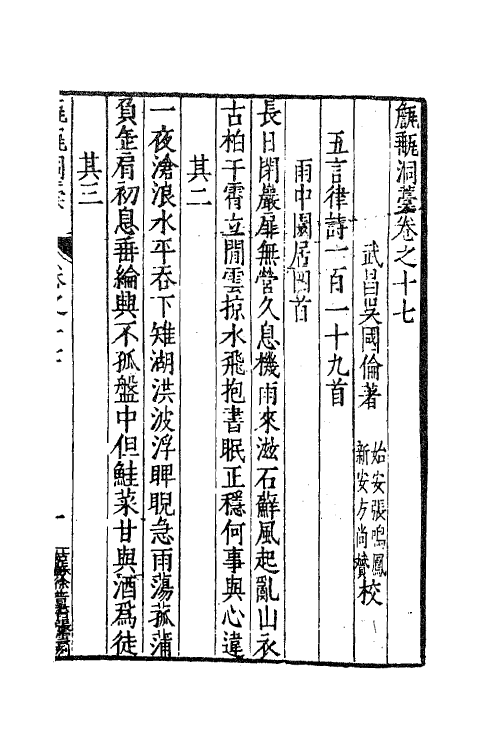 甔甀洞藁卷之十七
武昌吳國倫著
始安張鳴鳳
新安方尚贇校
五言律詩一百一十九首
雨中園居四首
長日閉巖扉無營久息機雨來滋石蘚風起亂山衣
古柏干霄立閒雲掠水飛抱書眠正穩何事與心違
其二
一夜滄浪水平吞下雉湖洪波浮睥睨急雨蕩菰蒲
負缶肩初息垂綸興不孤盤中但鮭菜甘與酒爲徒
其三